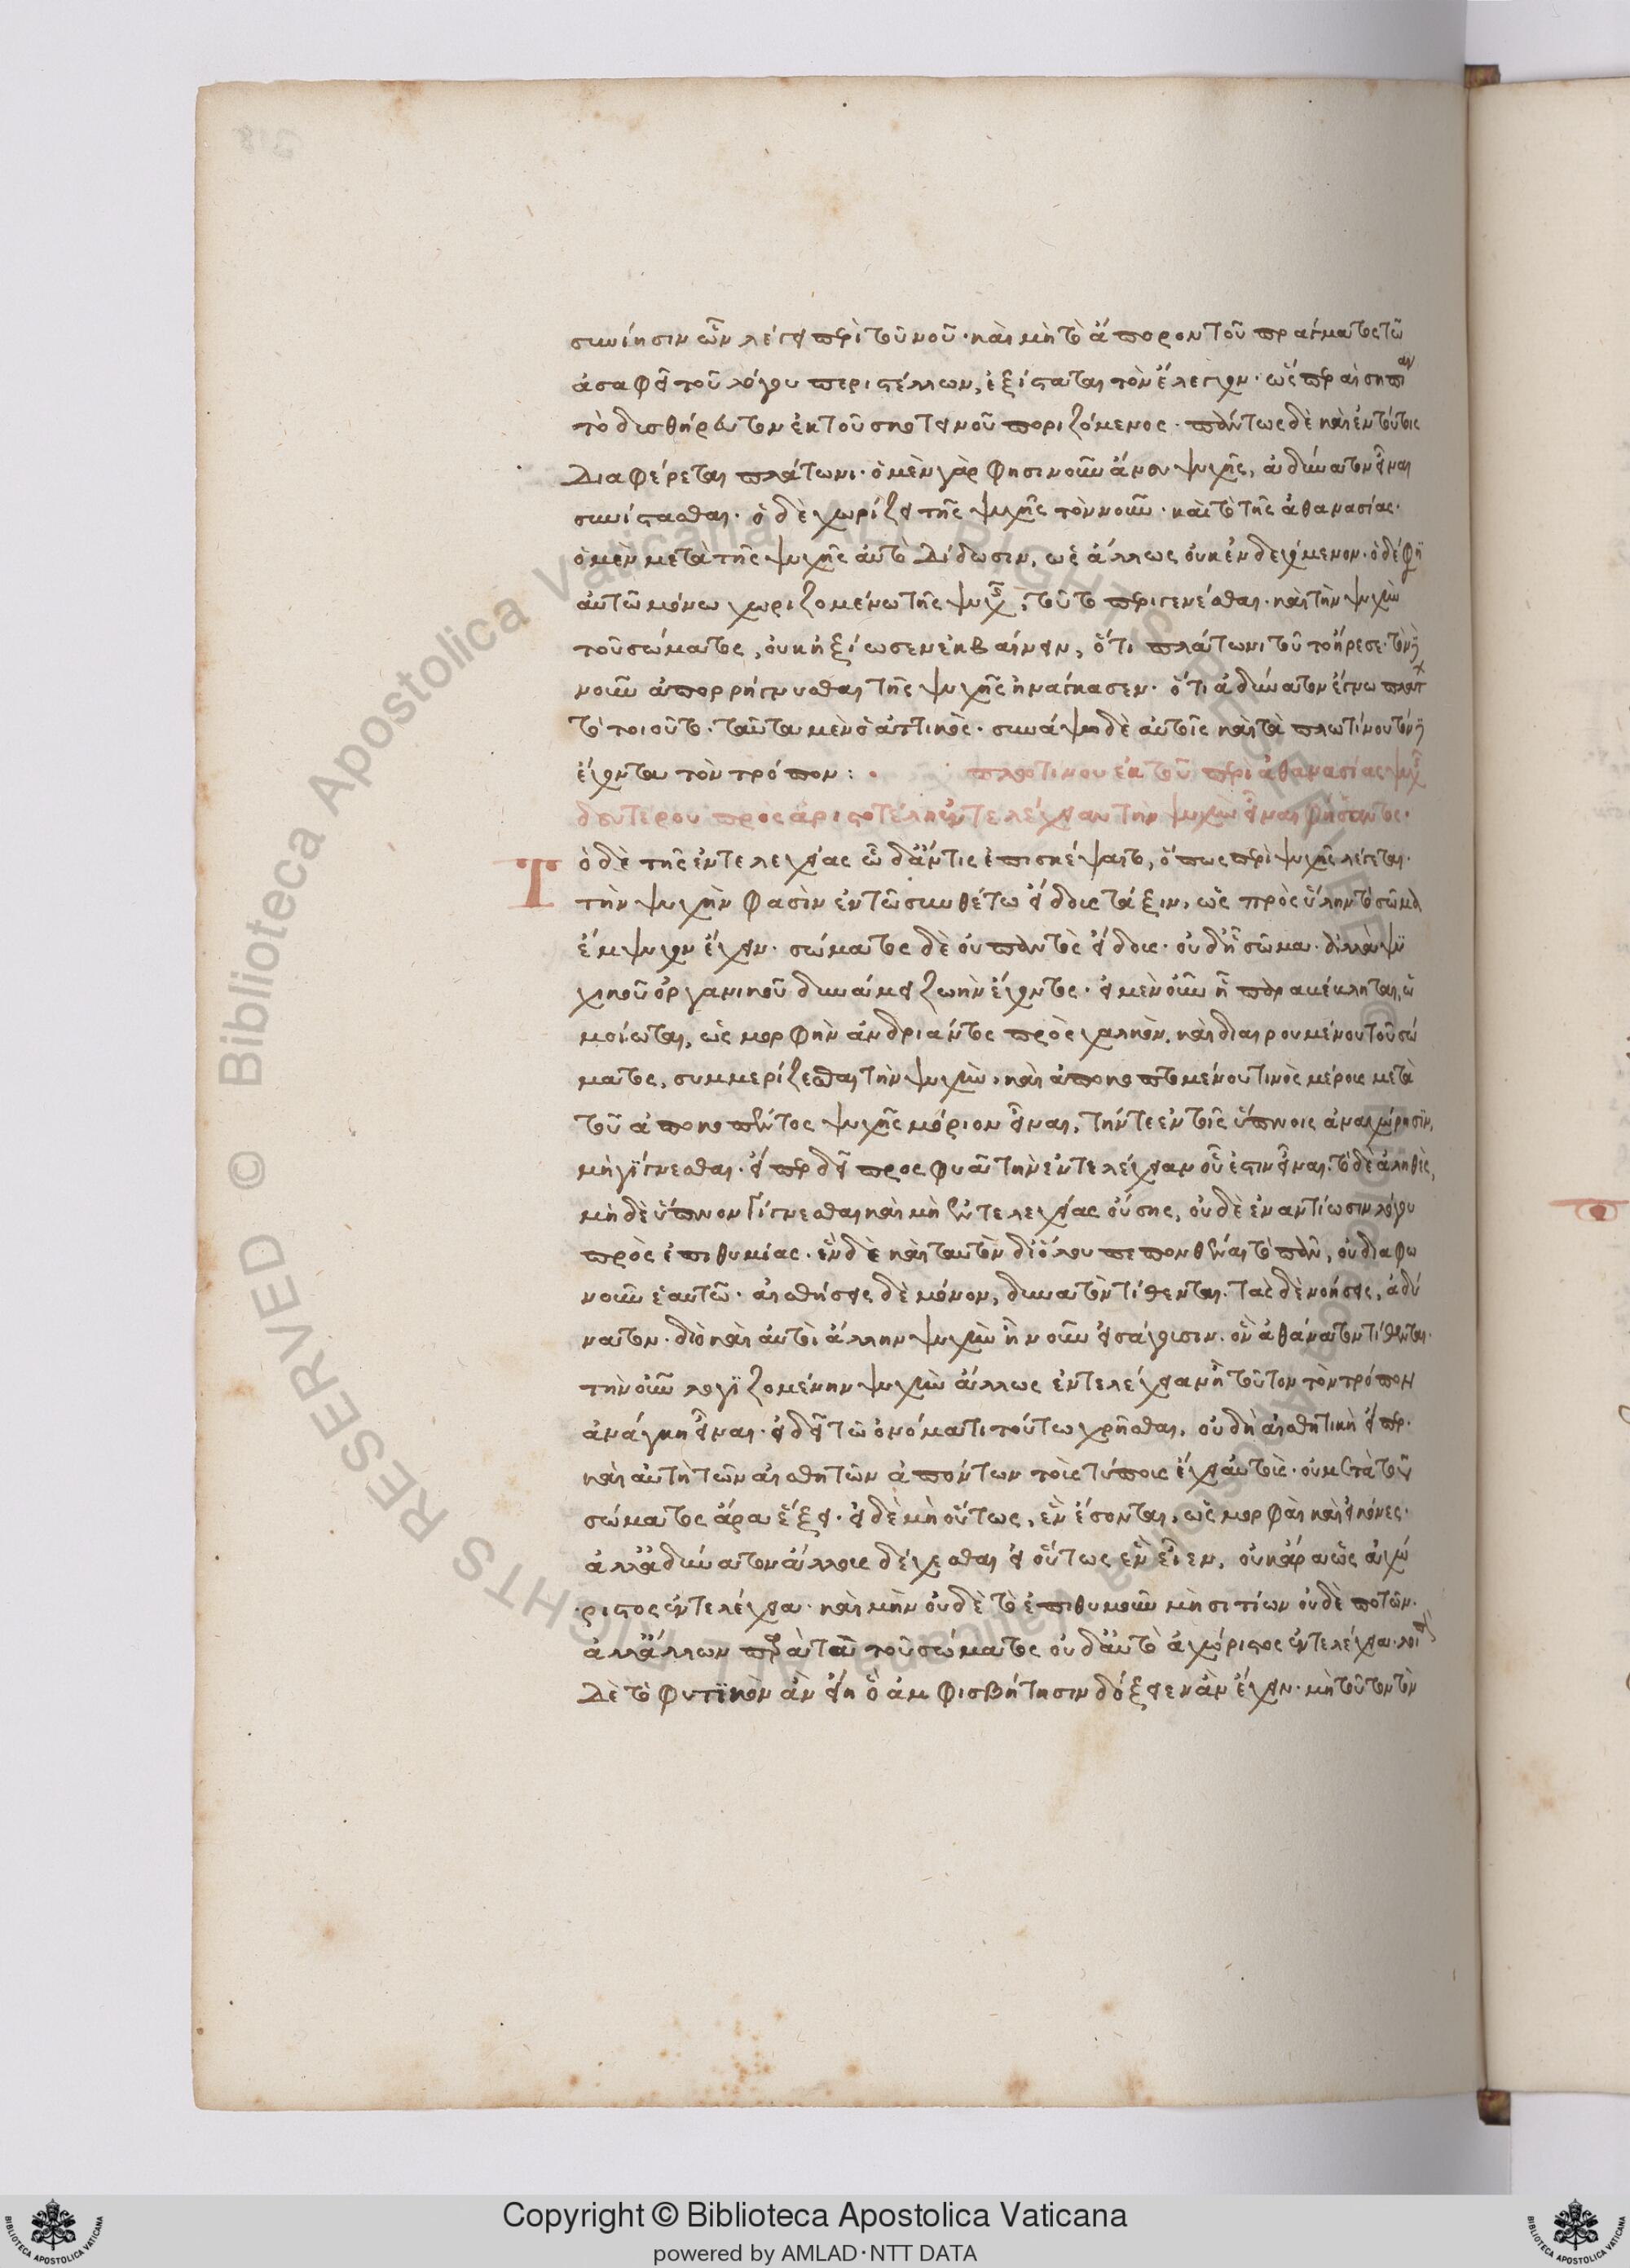 συνίησιν ὧν λέγει περὶ τοῦ νοῦ· καὶ μὴ τὸ ἄπορον τοῦ πράγματος τῶ
ἀσαφεῖ τοῦ λόγου περιστέλλων, ἐξίσταται τὸν ἔλεγχον· ὥσπερ αἱ σηπίαι
τὸ δυσθήρευτον ἐκ τοῦ σκοτεινοῦ ποριζόμενος· πάντως δὲ καὶ ἐν τούτοις
Διαφέρεται πλάτωνι· ὁ μὲν γάρ φησι νοῦν ἄνευ ψυχῆς, ἀδύνατον εἶναι
συνίστασθαι· ὁ δὲ χωρίζει τῆς ψυχῆς τὸν νοῦν· καὶ τὸ τῆς ἀθανασίας·
ὁ μὲν μετὰ τῆς ψυχῆς αὐτὸ Δίδωσιν, ὡς ἄλλως οὐκ ἐνδεχόμενον· ὁ δέ φη
αὐτῶ μόνω χωριζομένω τῆς ψυχῆς, τοῦτο περιγενέσθαι· καὶ τὴν ψυχὴν
τοῦ σώματος, οὐκ ἠξίωσεν ἐκβαίνειν, ὅτι πλάτωνι τοῦτο ἤρεσε· τὸν δὲ
νοῦν ἀπορρήγνυσθαι τῆς ψυχῆς ἠνάγκασεν· ὅτι ἀδύνατον ἔγνω πλάτων
τὸ τοιοῦτο· ταῦτα μὲν ὁ ἀττικός· συνάψω δὲ αὐτοῖς καὶ τὰ πλωτίνου τόνδε
ἔχοντα τὸν τρόπον: πλωτίνου ἐκ τοῦ περὶ ἀθανασίας ψυχῆς
δευτέρου πρὸς ἀριστοτέλη ἐντελέχειαν τὴν ψυχὴν εἶναι φήσαντος·
Τὸ δὲ τῆς ἐντελεχείας ὧδ' ἄν τις ἐπισκέψαιτο, ὅπως περὶ ψυχῆς λέγεται·
τὴν ψυχὴν φασὶν ἐν τῶ συνθέτω εἴδους τάξιν, ὡς πρὸς ὕλην τὸ σῶμα
ἔμψυχον ἔχειν· σώματος δὲ οὐ παντὸς εἴδους· οὐδ' ἧ σῶμα· ἀλλὰ ψυ
χικοῦ ὀργανικοῦ δυνάμει ζωὴν ἔχοντος· εἰ μὲν οὖν ἧ παρακέκληται, ὡ
μοίωται, ὡς μορφὴν ἀνδριάντος πρὸς χαλκὸν, καὶ διαιρουμένου τοῦ σώ
ματος, συμμερίζεσθαι τὴν ψυχὴν, καὶ ἀποκοπτομένου τινὸς μέρους μετὰ
τοῦ ἀποκοπέντος ψυχῆς μόριον εἶναι, τήν τε ἐν τοῖς ὕπνοις ἀναχώρησιν,
μὴ γίγνεσθαι· εἴπερ δεῖ προσφυᾶ τὴν ἐντελέχειαν οὗ ἐστιν εἶναι· τὸ δὲ ἀληθὲς,
μὴ δὲ ὕπνον γίγνεσθαι καὶ μὴν ἐντελεχείας οὔσης, οὐδὲ ἐναντίωσιν λόγου
πρὸς ἐπιθυμίας· ἓν δὲ καὶ ταυτὸν δι' ὅλου πεπονθέναι τὸ πᾶν, οὐ διαφω
νοῦν ἑαυτῶ· αἰσθήσεις δὲ μόνον, δυνατὸν τίθενται· τὰς δὲ νοήσεις, ἀδύ
νατον· διὸ καὶ αὐτοὶ ἄλλην ψυχὴν ἢ νοῦν εἰσάγουσιν· ὃν ἀθάνατον τίθενται·
τὴν οὖν λογιζομένην ψυχὴν ἄλλως ἐντελέχειαν ἢ τοῦτον τὸν τρόπον
ἀνάγκη εἶναι· εἰ δεῖ τῶ ὀνόματι τούτω χρῆσθαι, οὐδ' ἡ αἰσθητικὴ εἴπερ·
καὶ αὐτὴ τῶν αἰσθητῶν ἀπόντων τοὺς τύπους ἔχει αὐτοὺς· οὐ μετὰ τοῦ
σώματος ἄρα ἕξει· εἰ δὲ μὴ οὕτως, ἓν ἔσονται, ὡς μορφαὶ καὶ εἰκόνες·
ἀλλ' ἀδύνατον ἄλλους δέχεσθαι εἰ οὕτως ἓν εἶεν, οὐκ ἄρα ὡς ἀχώ
ριστος ἐντελέχεια· καὶ μὴν οὐδὲ τὸ ἐπιθυμοῦν μὴ σιτίων οὐδὲ ποτῶν·
ἀλλ' ἄλλων παρὰ τὰ τοῦ σώματος οὐδ' αὐτὸ ἀχώριστος ἐντελέχεια· λοιπὸν
Δὲ τὸ φυτικὸν ἂν εἴη ὃ ἀμφισβήτησιν δόξειεν ἂν ἔχειν· μὴ τοῦτον τὸν